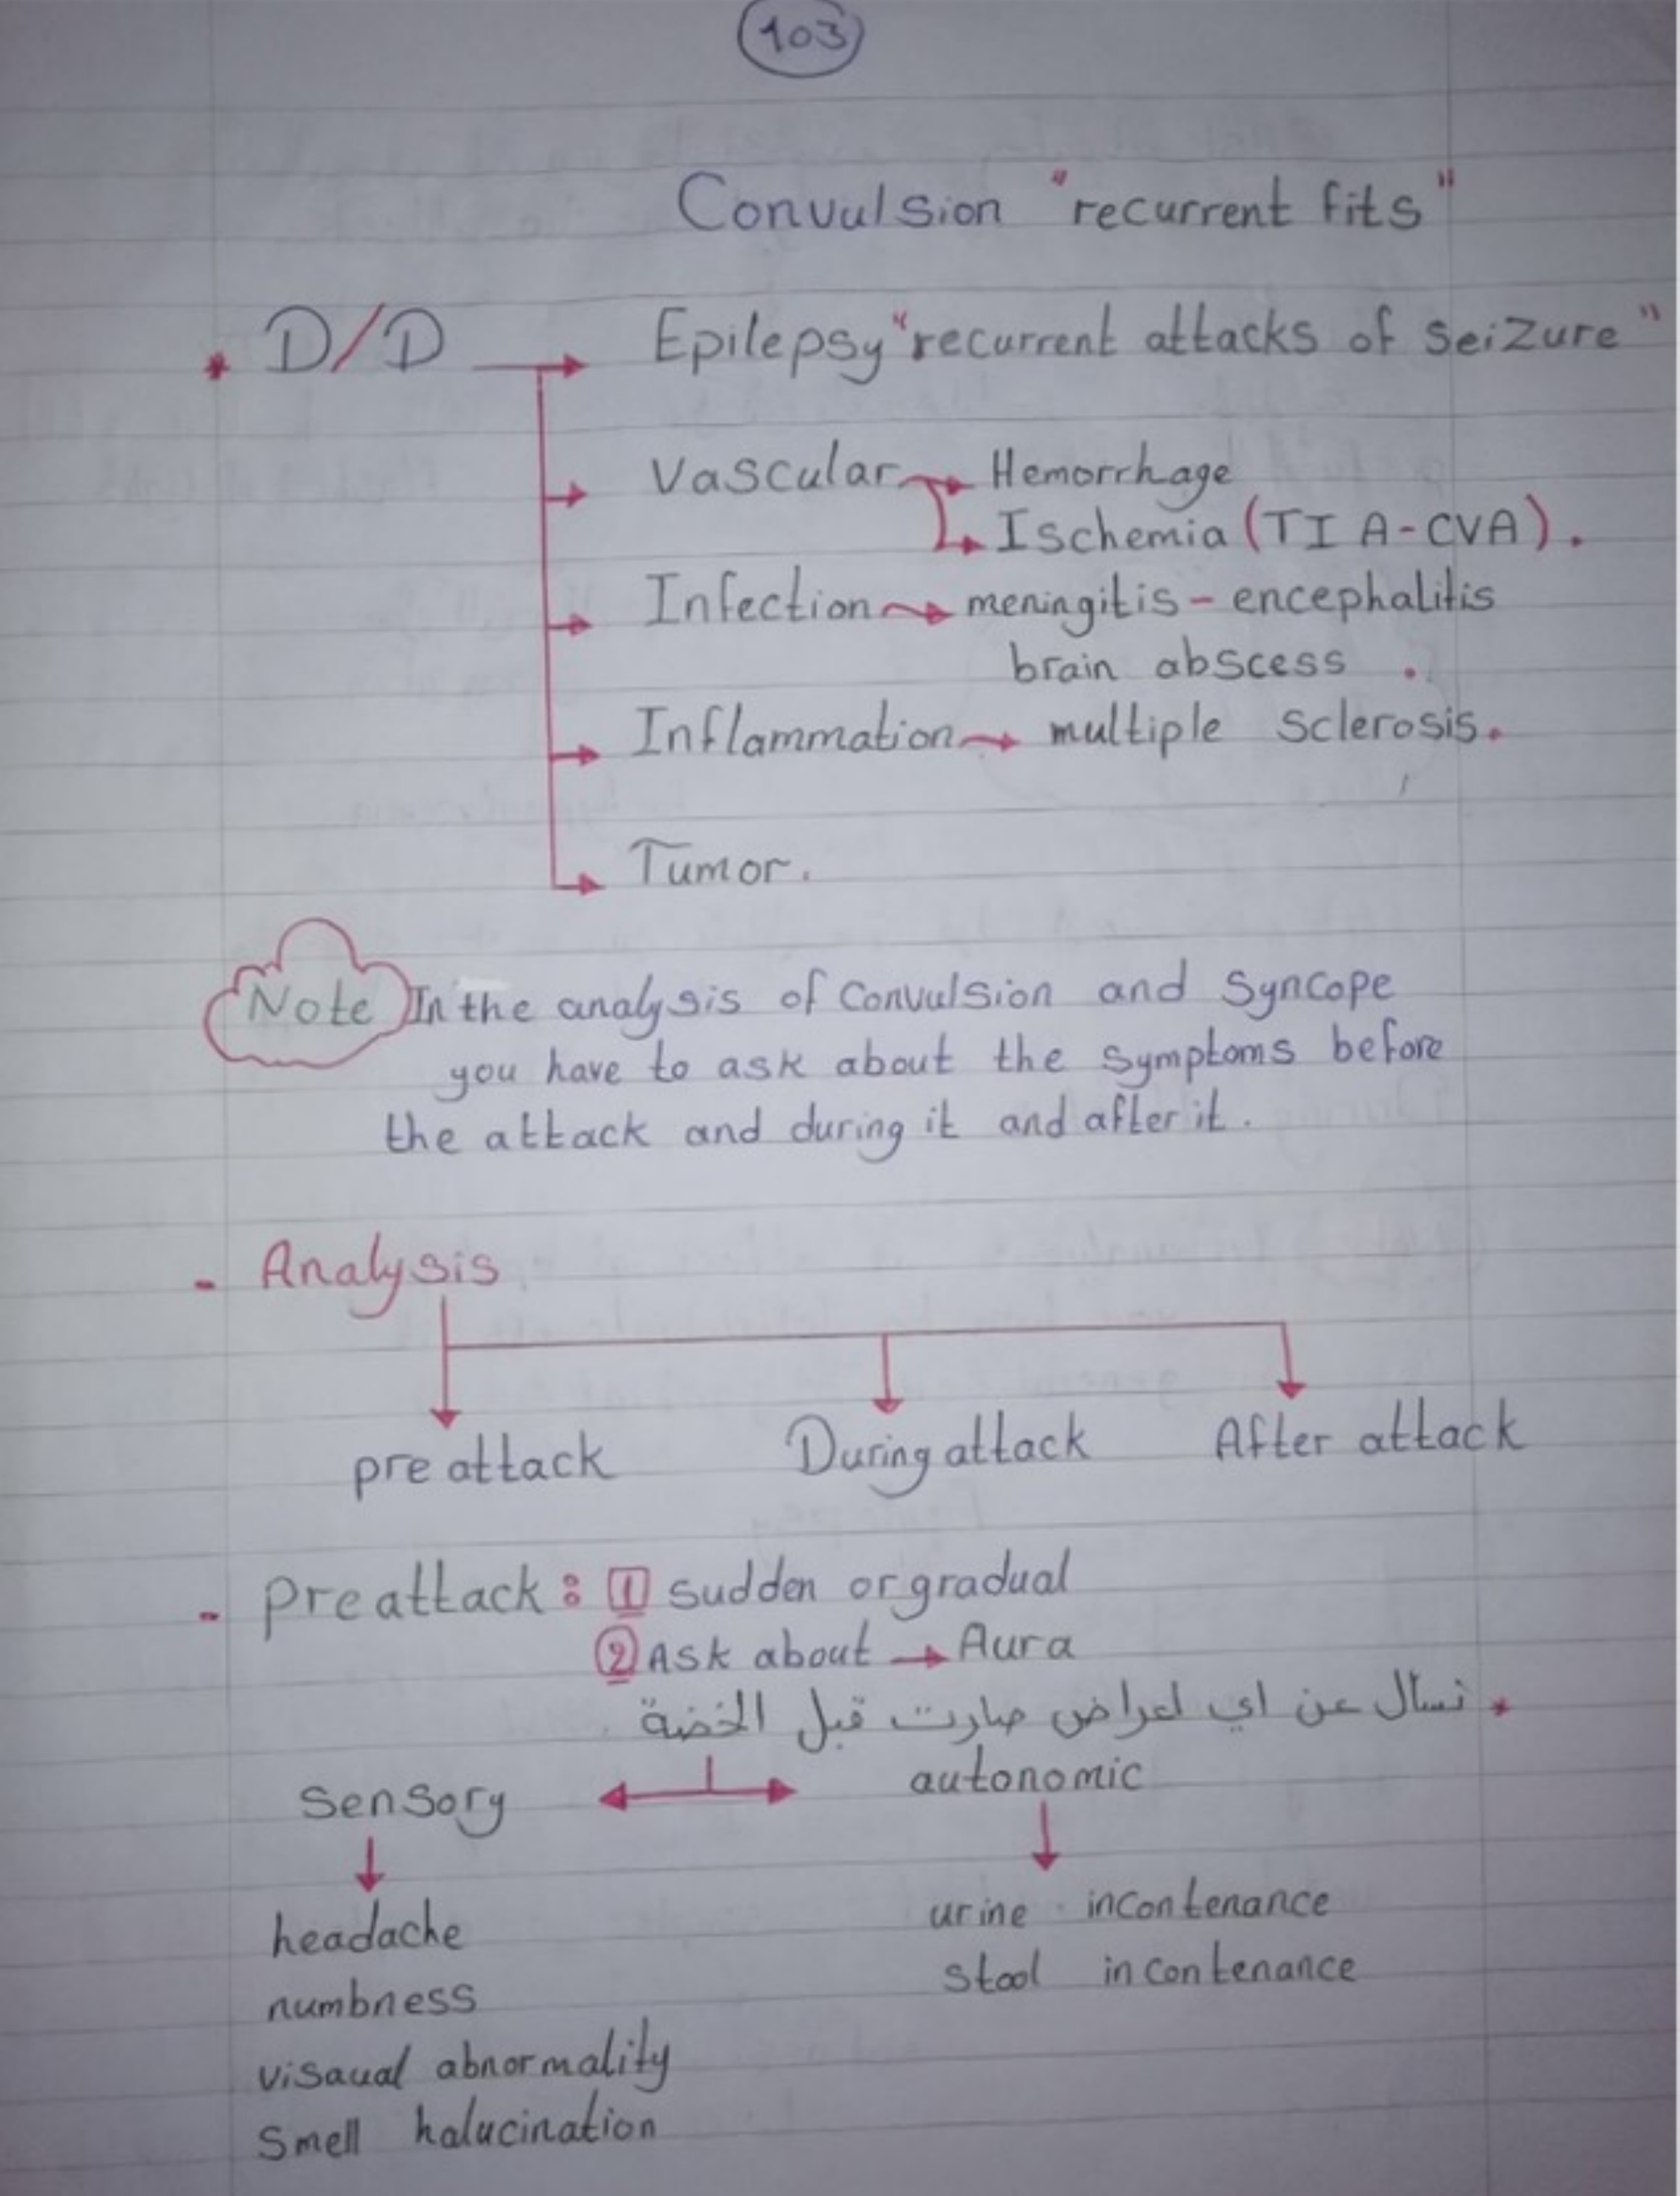 103
Convulsion "recurrent fits"
* D/D → Epilepsy "recurrent attacks of seizure"
→ Vascular → Hemorrhage
→ Ischemia (TIA-CVA).
→ Infection → meningitis - encephalitis
brain abscess .
→ Inflammation → multiple sclerosis.
→ Tumor.
Note In the analysis of convulsion and syncope
you have to ask about the symptoms before
the attack and during it and after it.
- Analysis
pre attack During attack After attack
- Pre attack: 1 sudden or gradual
2 Ask about → Aura
* نسال عن اي اعراض صارت قبل الخضة
sensory ← → autonomic
headache
urine incontenance
numbness
stool incontenance
visaual abnormality
Smell halucination